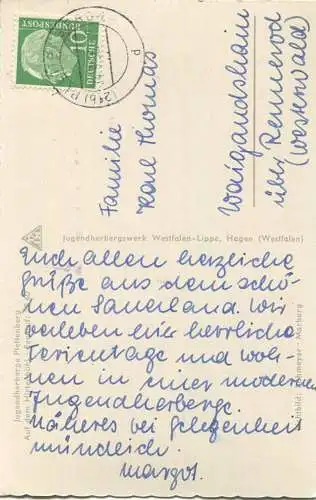 DEUTSCHE
BUNDESPOST
10
(21b)
p
Familie
Karl Thomas
Waigandshain
über Rennerod
(Westerwald)
Jugendherbergswerk Westfalen-Lippe, Hagen (Westfalen)
Euch allen herzliche
Grüße aus dem schö-
nen Sauerland. Wir
verleben hier herrliche
Ferientage und woh-
nen in einer modernen
Jugendherberge.
Näheres bei Gelegenheit
mündlich.
Margot.
Jugendherberge Plettenberg
Auf dem
Marburg